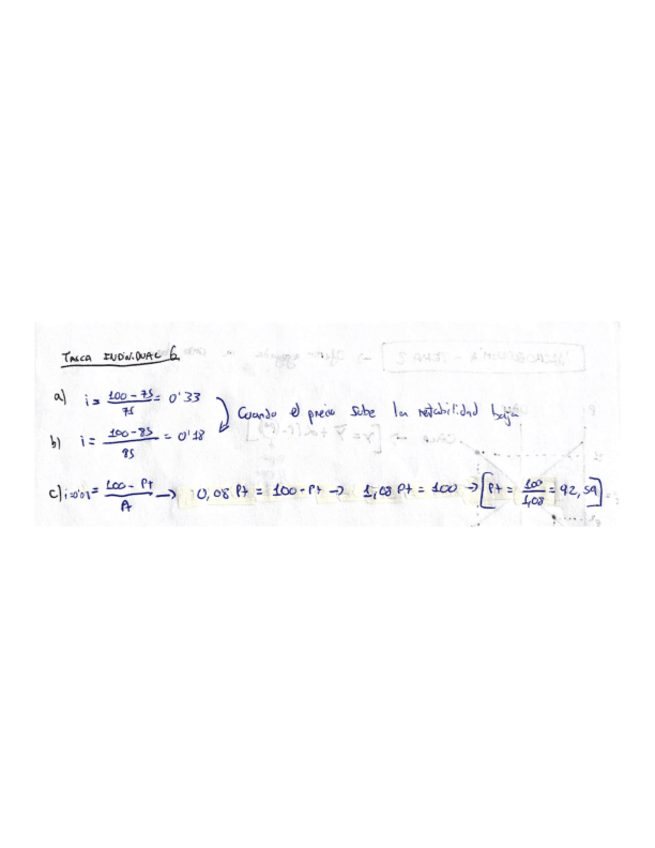 TASCA INDIVIDUAL 6
a) i = 100 - 75 / 75 = 0'33
Cuando el precio sube la rentabilidad baja
b) i = 100 - 85 / 85 = 0'18
c) i=0'08 = 100 - Pt / Pt → 0,08 Pt = 100 - Pt → 1,08 Pt = 100 → [Pt = 100 / 1,08 = 92,59]